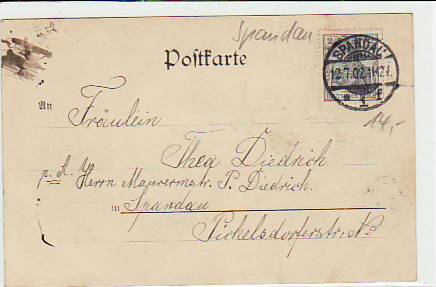 Spandau
Postkarte
SPANDAU
12.7.02.11-12V.
* 1 f
14,-
An
Fräulein
Thea Diedrich
p. A. Herrn Maurermstr. P. Diedrich.
in Spandau
Pichelsdorferstr. No